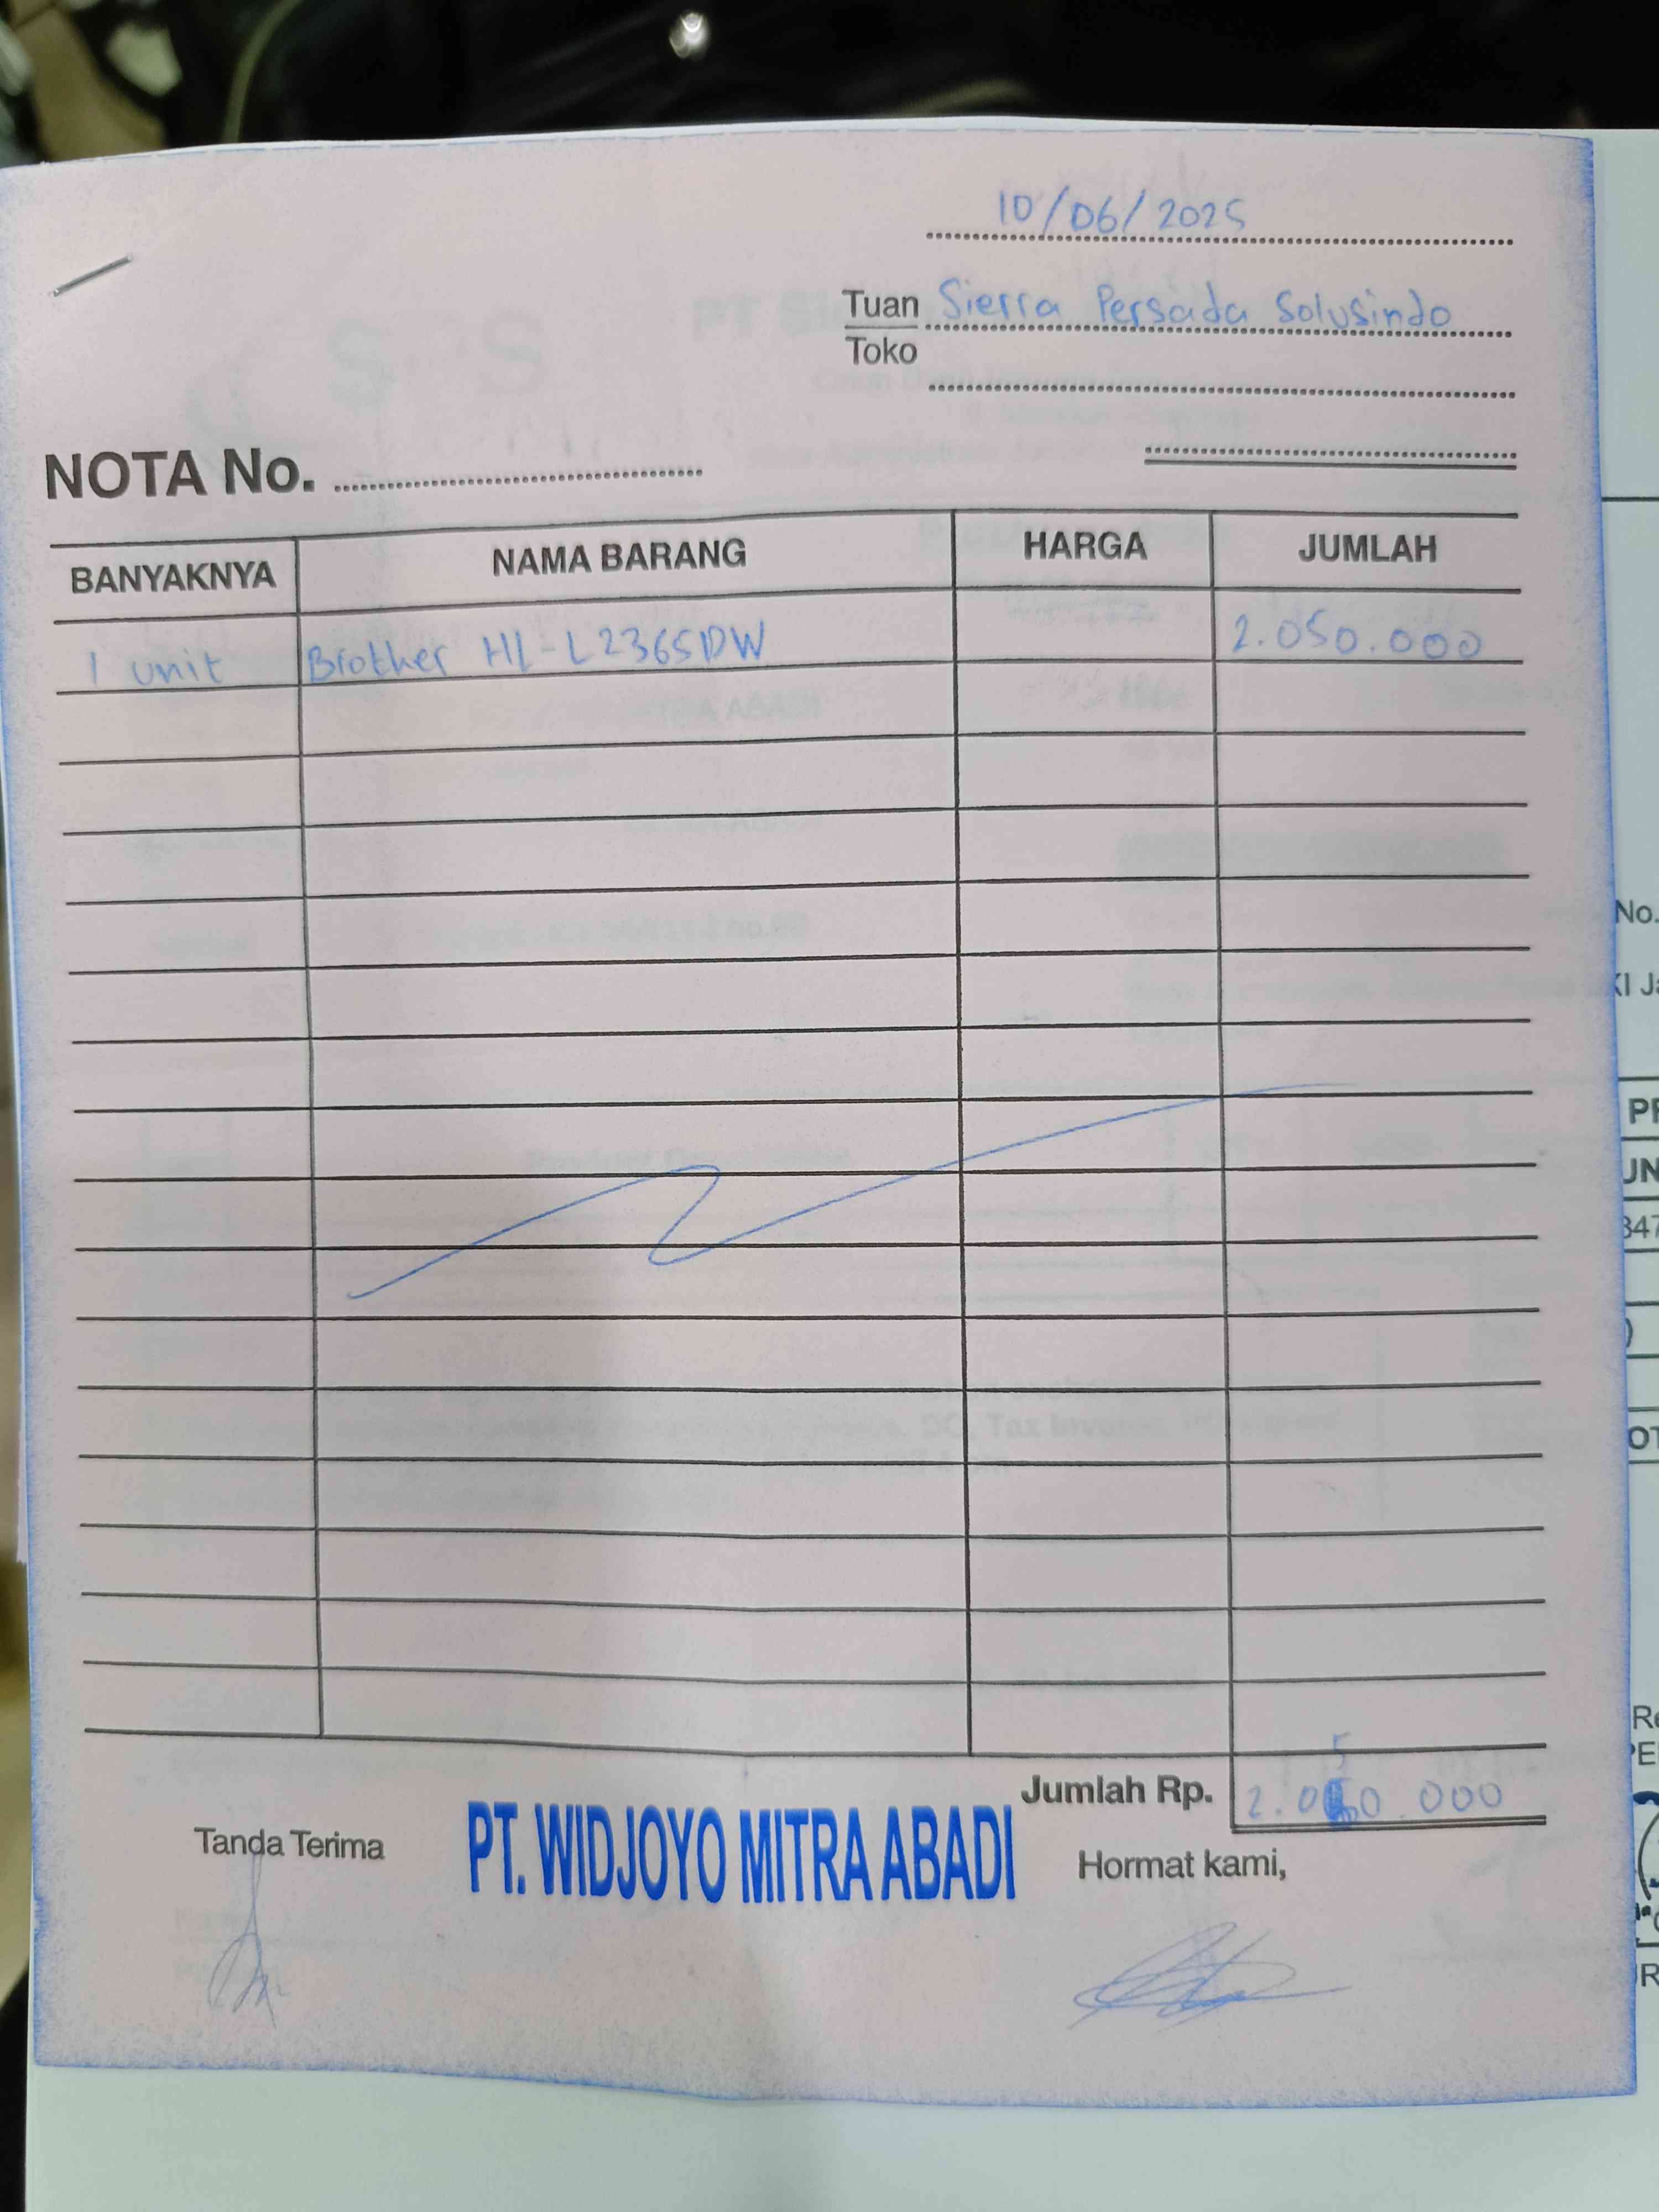 10/06/2025
Tuan Sierra Persada Solusindo
Toko
NOTA No.
BANYAKNYA NAMA BARANG HARGA JUMLAH
1 unit Brother HL-L2365DW 2.050.000
5
Jumlah Rp. 2.050.000
Tanda Terima PT. WIDJOYO MITRA ABADI Hormat kami,
No.